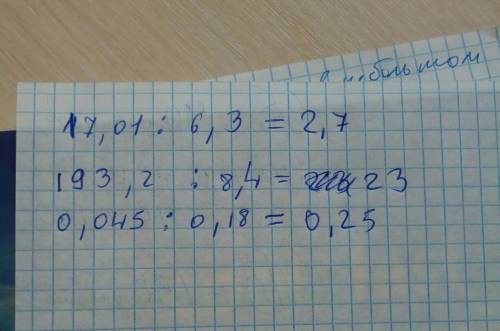 більшом
17,01 : 6,3 = 2,7
193,2 : 8,4 = 23
0,045 : 0,18 = 0,25